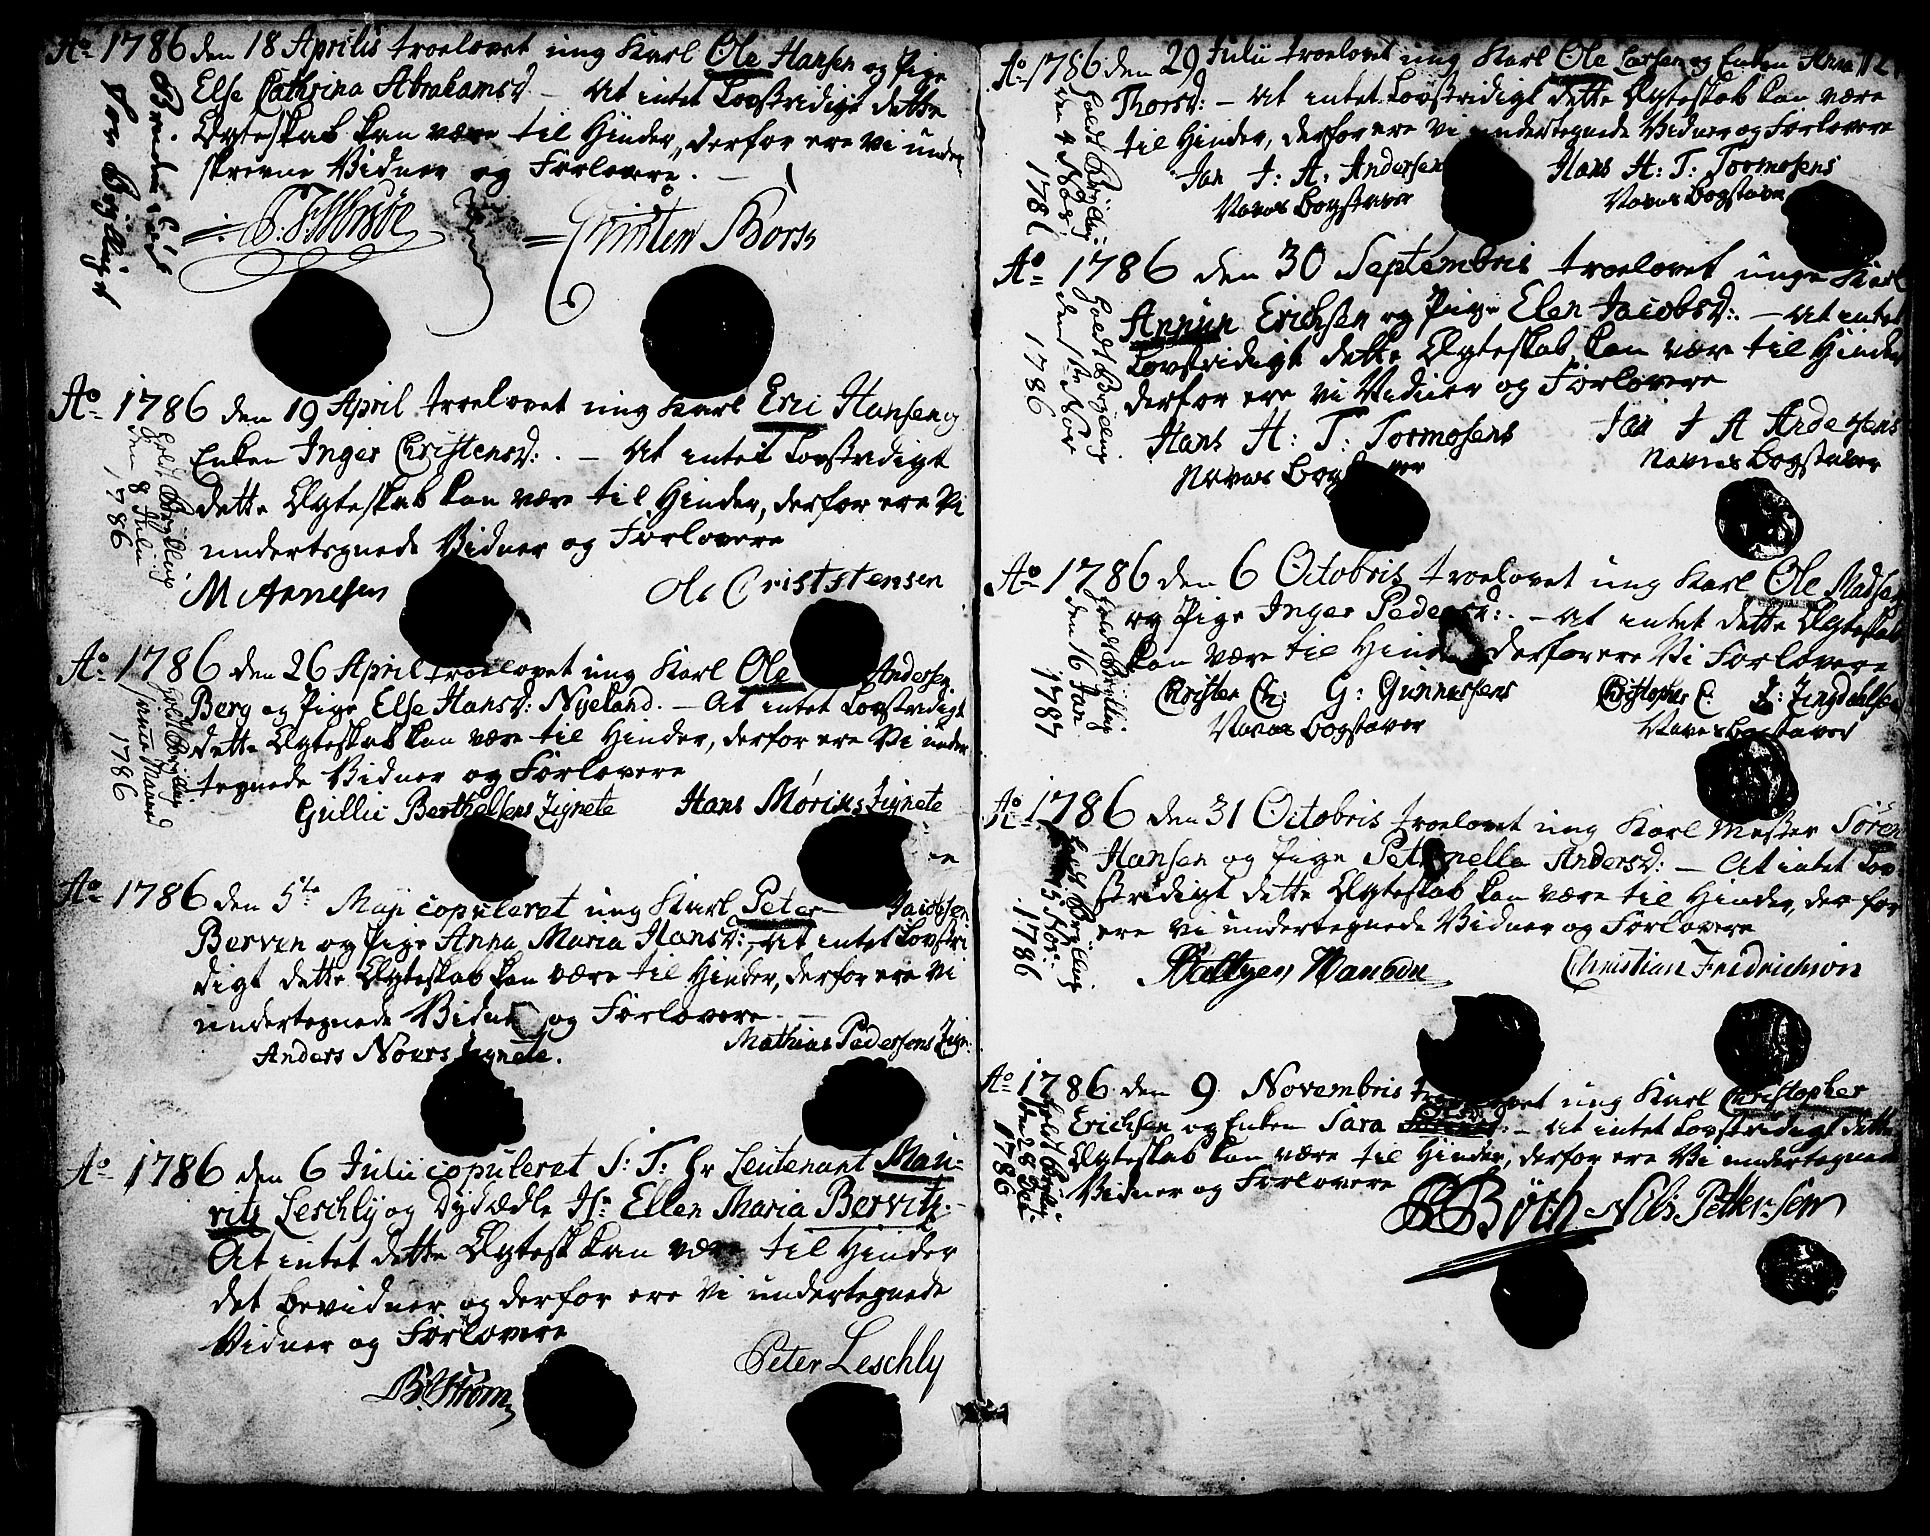 Ao 1786 den 18 Aprilis troelovet ung Karl Ole Hansen og Pige
Else Cathrina Abrahamsd – At intet Lovstridigt dette
Ægteskab kan være til Hinder, derfor ere Vi under
skrevne Vidner og Forlovere. –
Christen Borse
Ao 1786 den 19 April troelovet ung Karl Eric Hansen og
Enken Inger Christensd: . – At intet Lovstridigt
dette Ægteskab kan være til Hinder, derfor ere Vi
undertegnede Vidner og Forlovere
holdt Brÿllup
den 8 Julii
1786
M Annesen Ole Criststensen
Ao 1786 den 26 April troelovet ung Karl Ole Andersen
Berg og Pige Else Hansd: Nyeland. – At intet Lovstridigt
dette Ægteskab kan være til Hinder, derfor ere Vi under
tegnede Vidner og Forlovere
1786
Gullic Berthelsens Zignete Hans Mørixs Zignete
Ao 1786 den 5te Maji copuleret ung Karl Peter Jacobsen
Berven og Pige Anna Maria Hansd: – At intet Lovstri
digt dette Ægteskab kan være til Hinder, derfor ere Vi
undertegnede Vidner og Forlovere. –
Anders Nours Zignete. Mathias Pedersens Zign:
Ao 1786 den 6 Julii copuleret S: T: Hr Leutenant Mau-
ritz Leschly og Dydædle Jfr Ellen Maria Bervitz. –
At intet dette Ægtesk kan være til Hinder
det bevidner og derfor ere Vi undertegnede
Vidner og Forlovere
B. Strøm Peter Leschly
Ao 1786 den 29 Julii troelovet ung Karl Ole Larsen og Enken Anna
Thorsd: – At intet Lovstridigt dette Ægteskab kan være
til Hinder, derfor ere Vi undertegnede Vidner og Forlovere
holdt Brÿllup
den 4 Nov:
1786
Jan J: A: Andersen Hans H: T: Tormosens
Navns Bogstaver Navns Bogstaver
Ao 1786 den 30 Septembris troelovet unge Karl
Annun Erichsen og Pige Elen Jacobsd: – At intet
Lovstridigt dette Ægteskab kan være til Hinder
derfor ere vi Vidner og Forlovere
1786
Hans H: T: Tormosens Jan J A Andersens
Navns Bogstaver Navns Bogstaver
Ao 1786 den 6 Octobris troelovet ung Karl Ole Madsen
og Pige Inger Pedersd: . – At intet dette Ægteskab
kan være til Hinder derfor ere Vi Forlovere
holdt Brÿllup
den 16 Jan
1787
Christen Ch: G: Gunnersens Christopher C:
Navns Bogstaver Navns Bogstaver
Ao 1786 den 31 Octobris troelovet ung Karl Mester Søren
Hansen og Pige Petronelle Andersd: – At intet Lov
stridigt dette Ægteskab kan være til Hinder, der for
ere Vi undertegnede Vidner og Forlovere
1786
Christian Fredrichson
Ao 1786 den 9 Novembris troelovet ung Karl Christopher
Erichsen og Enken Sara – At intet Lovstridigt dette
Ægteskab kan være til Hinder, derfor ere Vi undertegnede
Vidner og Forlovere
1786
Böth Nils Petter-Sen